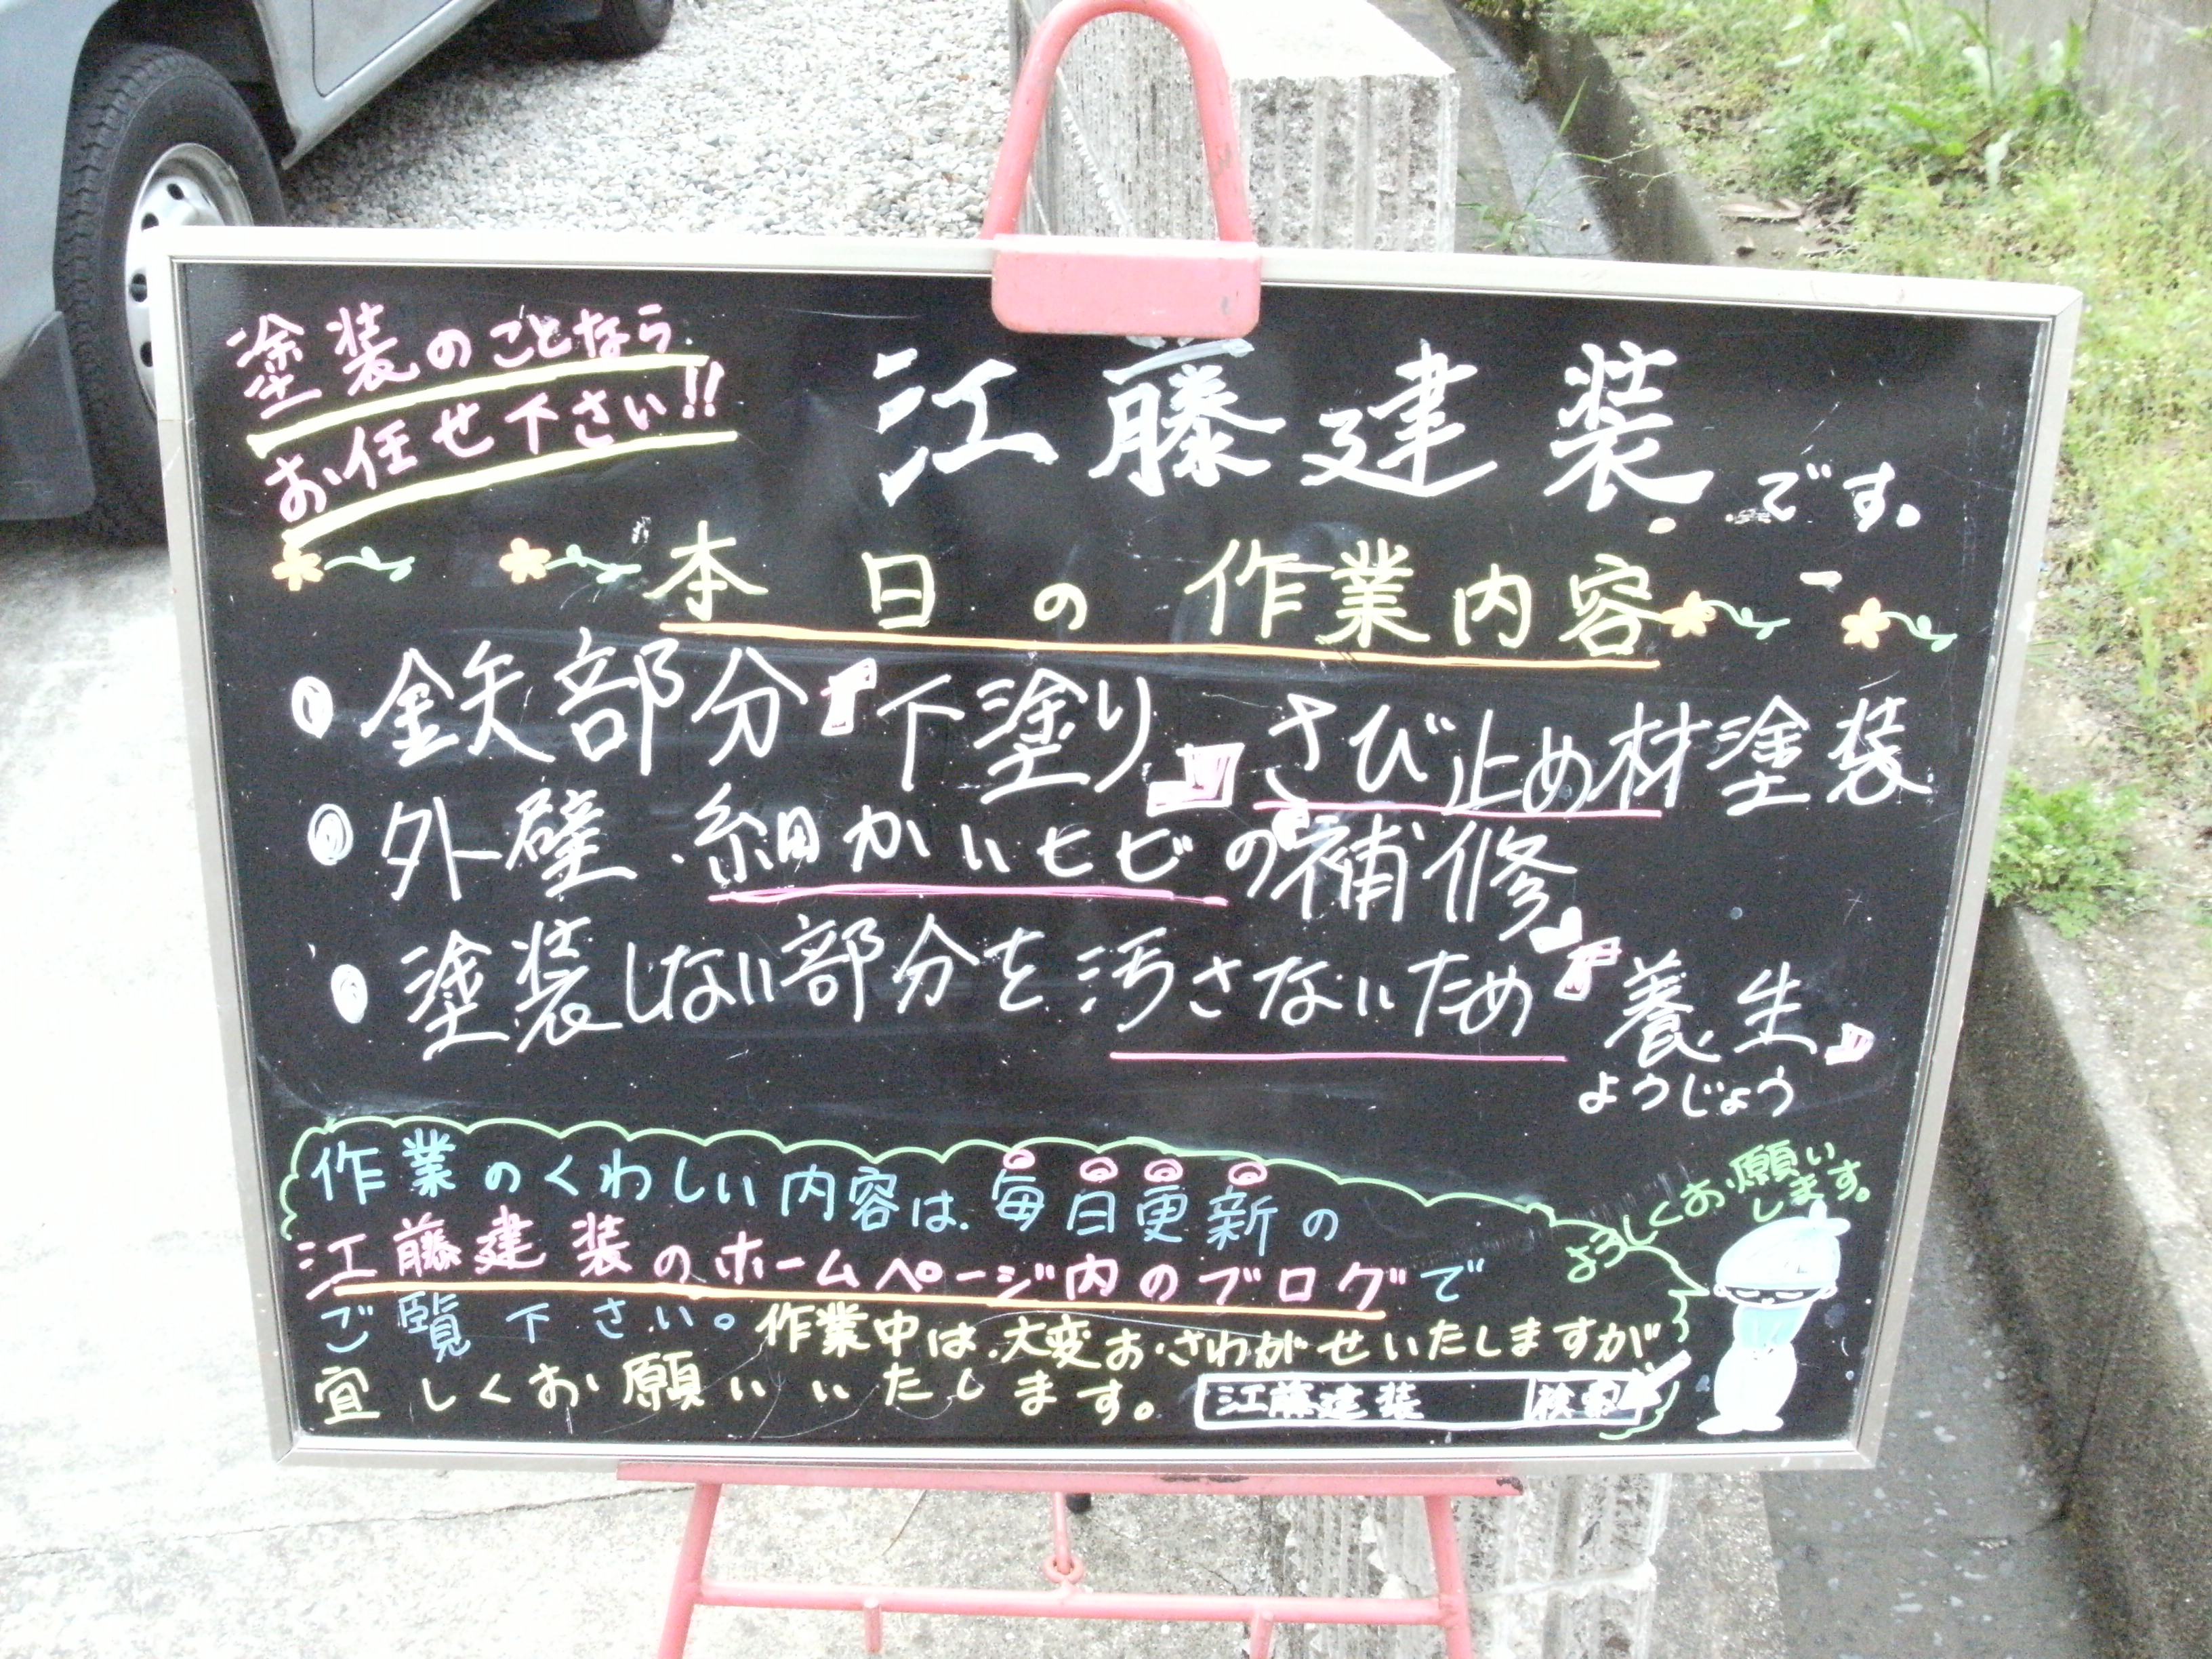 塗装のことなら
お任せ下さい!!
江藤建装です。
本日の作業内容
鉄部分「下塗り」さび止め材塗装
外壁.細かいヒビの補修
塗装しない部分を汚さないため「養生」
ようじょう
作業のくわしい内容は.毎日更新の
江藤建装のホームページ内のブログで
ご覧下さい。作業中は.大変おさわがせいたしますが
宜しくお願いいたします。
江藤建装 検索
よろしくお願い
します。